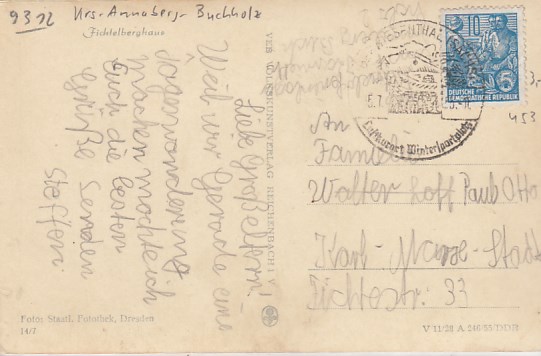 9312 Krs-Annaberg-Buchholz
Fichtelberghaus
Liebe Großeltern!
Weil wir gerade eine
machen möchte ich
Euch die besten
Grüße senden
Steffen
VEB VOLKSKUNSTVERLAG REICHENBACH i. V.
Foto: Staatl. Fotothek, Dresden
14/7
10
5
DEUTSCHE
DEMOKRATISCHE REPUBLIK
Luftkurort Wintersportplatz
453
An
Familie
Walter Loff Paub Otto
Karl-Marx-Stadt
33
V 11/28 A 246/55/DDR